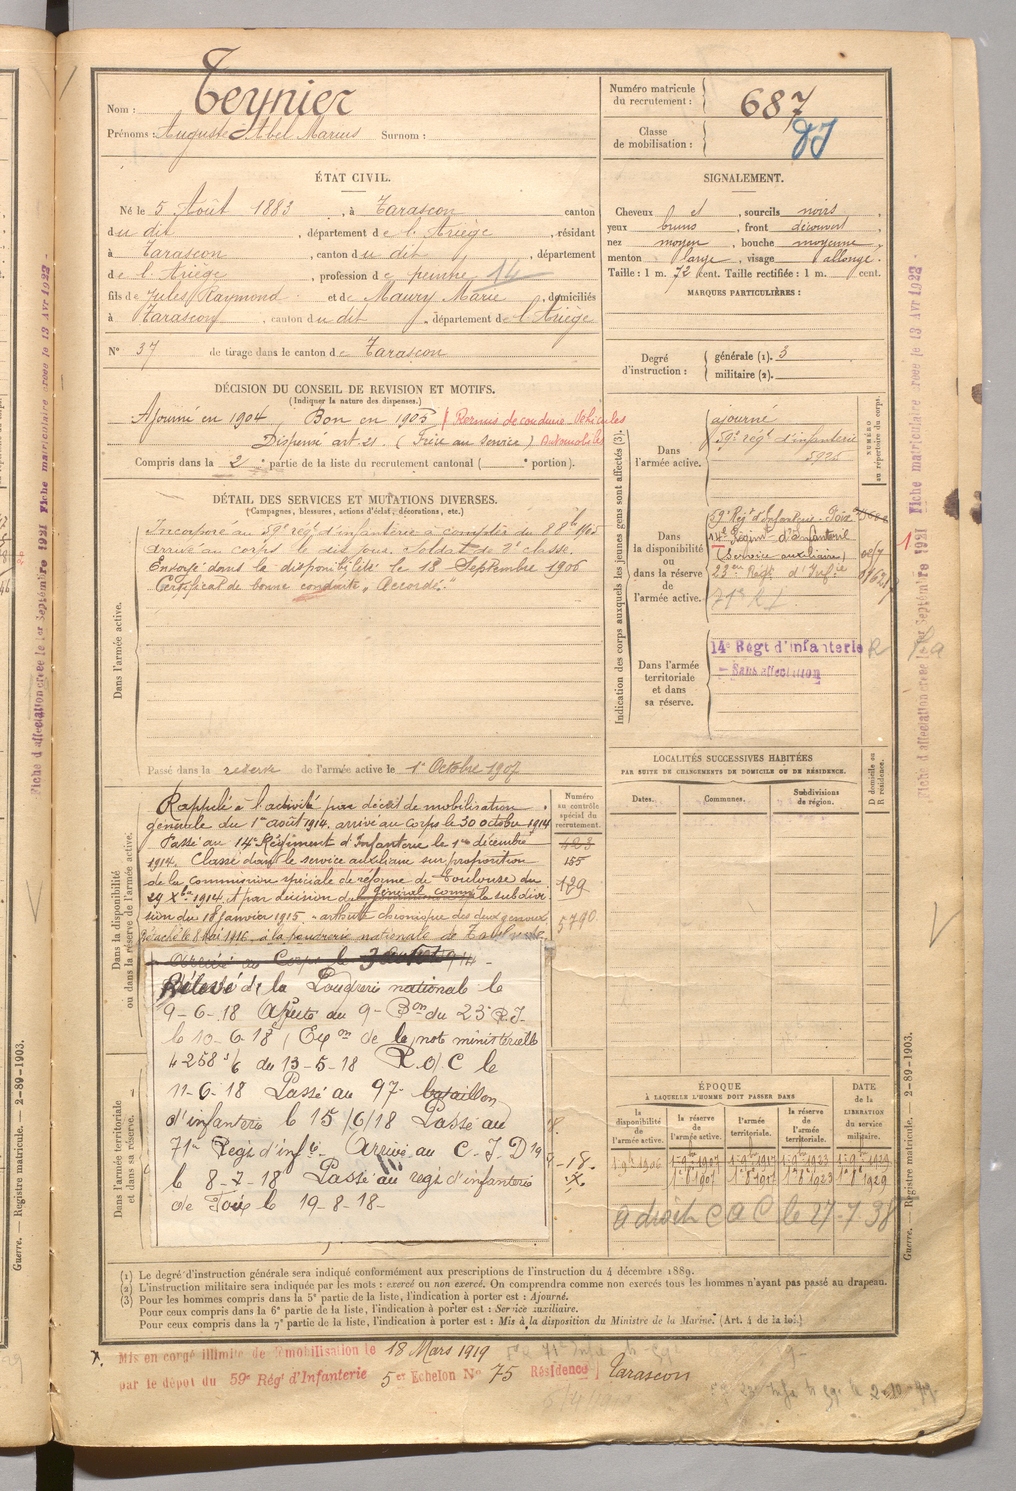 Nom : Teynier
Prénoms : Auguste Abel Marius Surnom :
Numéro matricule du recrutement : 687
Classe de mobilisation :
ÉTAT CIVIL.
Né le 5 Août 1883, à Tarascon canton
du dit, département de l'Ariège, résidant
à Tarascon, canton du dit, département
de l'Ariège, profession de peintre 14
fils de Jules Raymond et de Maury Marie, domiciliés
à Tarascon, canton du dit, département de l'Ariège
N° 37 de tirage dans le canton de Tarascon
SIGNALEMENT.
Cheveux et, sourcils noirs,
yeux bruns, front découvert
nez moyen, bouche moyenne,
menton large, visage allongé.
Taille : 1 m. 72 cent. Taille rectifiée : 1 m. cent.
MARQUES PARTICULIÈRES :
Degré d'instruction : générale (1). 3
militaire (2).
DÉCISION DU CONSEIL DE REVISION ET MOTIFS.
(Indiquer la nature des dispenses.)
Ajourné en 1904, Bon en 1905 Permis de conduire Véhicules
Dispensé art. 21 (Frère au service) Automobiles
Compris dans la 2e partie de la liste du recrutement cantonal ( portion).
DÉTAIL DES SERVICES ET MUTATIONS DIVERSES.
(Campagnes, blessures, actions d'éclat, décorations, etc.)
Dans l'armée active.
Incorporé au 59e régt d'infanterie à compter du 8 8bre 1905
arrivé au corps le dit jour. Soldat de 2e classe.
Envoyé dans la disponibilité le 18 Septembre 1906
Certificat de bonne conduite "Accordé."
Passé dans la réserve de l'armée active le 1er Octobre 1907
Indication des corps auxquels les jeunes gens sont affectés (3).
NUMÉRO au répertoire du corps.
Dans l'armée active.
ajourné
59e régt d'infanterie
5925
Dans la disponibilité ou dans la réserve de l'armée active.
59e Régt d'Infanterie Foix
14e Régimt d'Infanterie
(service auxiliaire)
23e Régt d'Infie
71e R I
Dans l'armée territoriale et dans sa réserve.
14e Régt d'Infanterie
Sans affectation
LOCALITÉS SUCCESSIVES HABITÉES
PAR SUITE DE CHANGEMENTS DE DOMICILE OU DE RÉSIDENCE.
Dates. Communes. Subdivisions de région.
D domicile ou R résidence.
Dans la disponibilité ou dans la réserve de l'armée active.
Numéro au contrôle spécial du recrutement.
155
129
5790
Rappelé à l'activité par décret de mobilisation
générale du 1er août 1914, arrivé au corps le 30 octobre 1914
Passé au 14e Régiment d'Infanterie le 1er décembre
1914. Classé dans le service auxiliaire sur proposition
de la commission spéciale de réforme de Toulouse du
29 Xbre 1914 et par décision du général comm la subdivi
sion du 18 janvier 1915. arthrite chronique des deux genoux
Détaché le 8 Mai 1916 à la poudrerie nationale de Toulouse
Arrivé au Corps le 3 août 1914
Relevé de la Poudrerie national le
9-6-18 Afecté du 9e Bon du 23e R.I.
le 10-6-18, Exon de la note ministérielle
4258 3/6 du 13-5-18 R.O/C le
11-6-18 Passé au 97e bataillon
d'infanterie le 15/6/18 Passé au
71e Régt d'infie Arrivé au C.I.D 19
le 8-7-18 Passé au régt d'infanterie
de Foix le 19-8-18-
Dans l'armée territoriale et dans sa réserve.
ÉPOQUE
À LAQUELLE L'HOMME DOIT PASSER DANS
la disponibilité de l'armée active. la réserve de l'armée active. l'armée territoriale. la réserve de l'armée territoriale.
DATE de la LIBÉRATION du service militaire.
1 9bre 1906 1er 9bre 1907 1er 9bre 1917 1er 9bre 1923 1er 9bre 1929
1er 8bre 1907 1er 8bre 1917 1er 8bre 1923 1er 8bre 1929
a droit C a C le 27-7-38
(1) Le degré d'instruction générale sera indiqué conformément aux prescriptions de l'instruction du 4 décembre 1889.
(2) L'instruction militaire sera indiquée par les mots : exercé ou non exercé. On comprendra comme non exercés tous les hommes n'ayant pas passé au drapeau.
(3) Pour les hommes compris dans la 5e partie de la liste, l'indication à porter est : Ajourné.
Pour ceux compris dans la 6e partie de la liste, l'indication à porter est : Service auxiliaire.
Pour ceux compris dans la 7e partie de la liste, l'indication à porter est : Mis à la disposition du Ministre de la Marine. (Art. 4 de la loi.)
Mis en congé illimité de démobilisation le 18 Mars 1919
par le dépôt du 59e Rég d'Infanterie 5er Echelon N° 75 Résidence Tarascon
Guerre. — Registre matricule. — 2-89-1903.
Guerre. — Registre matricule. — 2-89-1903.
Fiche d'affectation creee le 1er Septembre 1921 Fiche matriculaire creee le 13 Avr 1922
Fiche d'affectation creee le 1er Septembre 1921 Fiche matriculaire creee le 13 Avr 1922